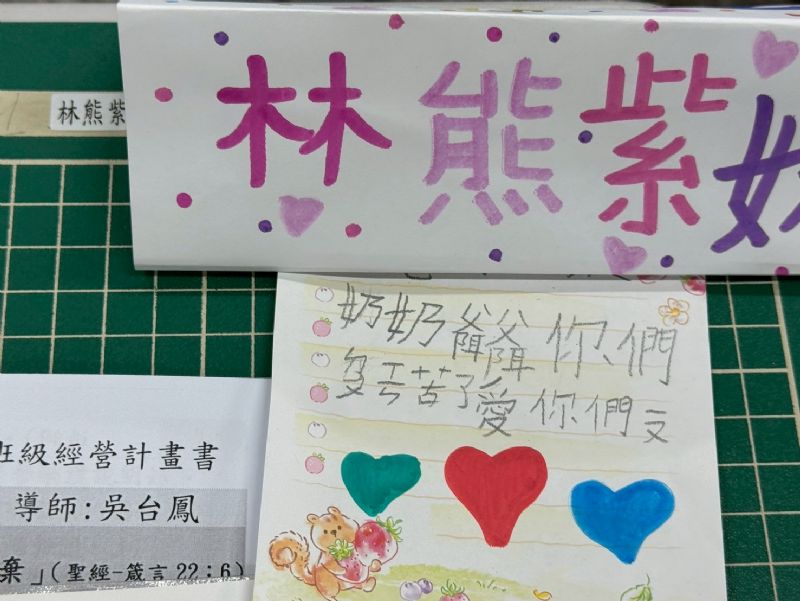 林熊紫
林熊紫
奶奶爺爺你們
辛苦了愛你們
班級經營計畫書
導師:吳台鳳
棄」(聖經-箴言22:6)